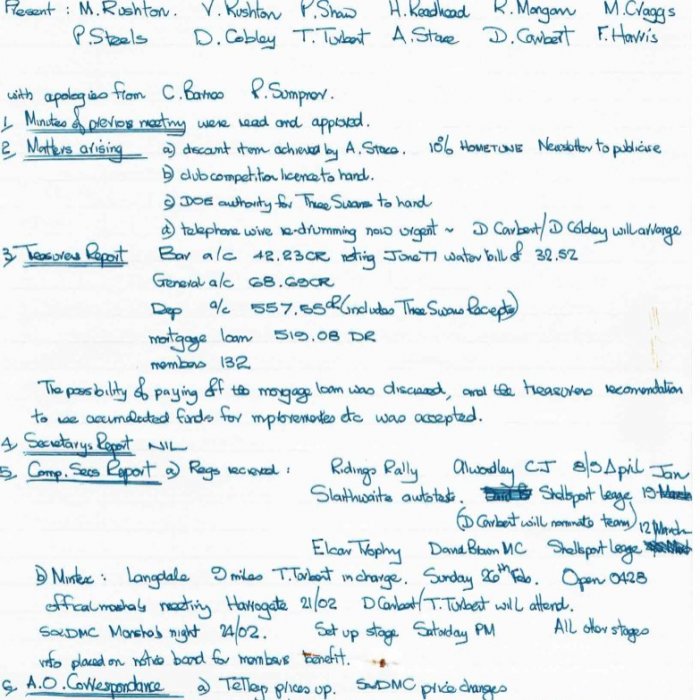 Present : M. Rushton. V. Rushton P. Shaw H. Readhead R. Morgan M. Craggs
P. Steels D. Cobley T. Turbert A. Stace D. Carbert F. Harris
with apologies from C. P. Sumpner.
1, Minutes of previous meeting were read and approved.
2, Matters arising a) discount item achieved by A. Stace. 10% HOMETUNE Newsletter to publicise
b) club competition licence to hand.
c) DOE authority for Three Swans to hand
d) telephone wire re-drumming now urgent ~ D Carbert/D Cobley will arrange
3, Treasurers Report Bar a/c 42.23CR noting June 77 water bill of 32.52
General a/c 68.69CR
Dep a/c 557.55CR (includes Three Swans Receipts)
mortgage loan 519.08 DR
members 132
The possibility of paying off the morgage loan was discussed, and the treasurers recomendation
to use accumulated funds for improvements etc was accepted.
4, Secretarys Report NIL
5, Comp. Secs Report a) Regs recieved : Ridings Rally Alwoodley CJ 8/9 April Jan
Slaithwaite autotest. Shellsport league 19
(D Carbert will nominate team) 12 March
Elcar Trophy David Brown MC Shellsport league
b) Mintex : Langdale 9 miles T. Torbert in charge. Sunday 26th Feb. Open 0428
official marshals meeting Harrogate 21/02 D Carbert/T. Turbert will attend.
SxDMC Marshals night 24/02. Set up stage Saturday PM All other stages
info placed on notice board for members benefit.
6, A.O. Correspondance a) Tetley prices up. price changes